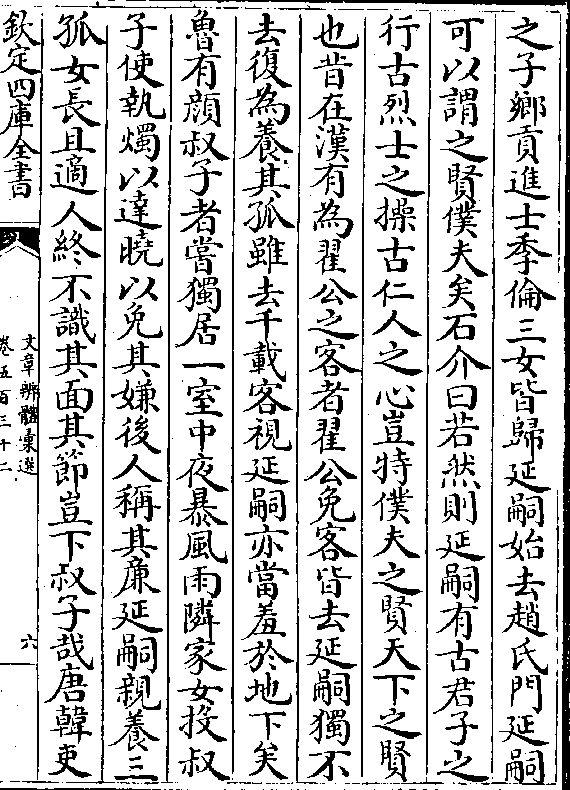 之子鄉貢進士季倫三女皆歸延嗣始去趙氏門延嗣
可以謂之賢僕夫矣石介曰若然則延嗣有古君子之
行古烈士之操古仁人之心豈特僕夫之賢天下之賢
也昔在漢有為翟公之客者翟公免客皆去延嗣獨不
去復為養其孤雖去千載客視延嗣亦當羞於地下矣
魯有顔叔子者嘗獨居一室中夜暴風雨隣家女投叔
子使執燭以達曉以免其嫌後人稱其廉延嗣親養三
孤女長且適人終不識其面其節豈下叔子哉唐韓吏
欽定四庫全書
文章辨體彚選
卷五百三十二
六